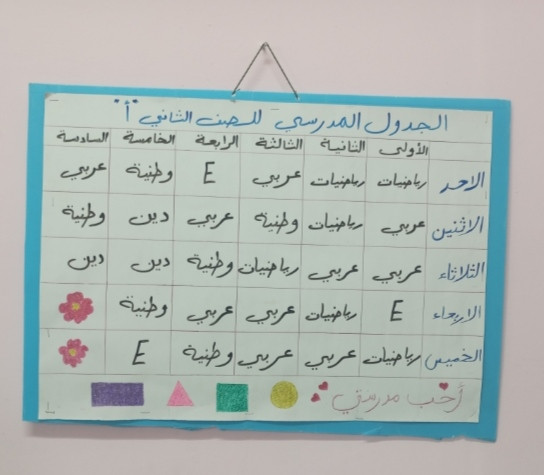 الجدول المدرسي للصف الثاني "أ"
الأولى الثانية الثالثة الرابعة الخامسة السادسة
الاحد رياضيات رياضيات عربي E وطنية عربي
الاثنين عربي رياضيات وطنية عربي دين وطنية
الثلاثاء عربي عربي رياضيات وطنية دين دين
الاربعاء E رياضيات عربي عربي وطنية
الخميس رياضيات عربي عربي وطنية E
أحب مدرستي